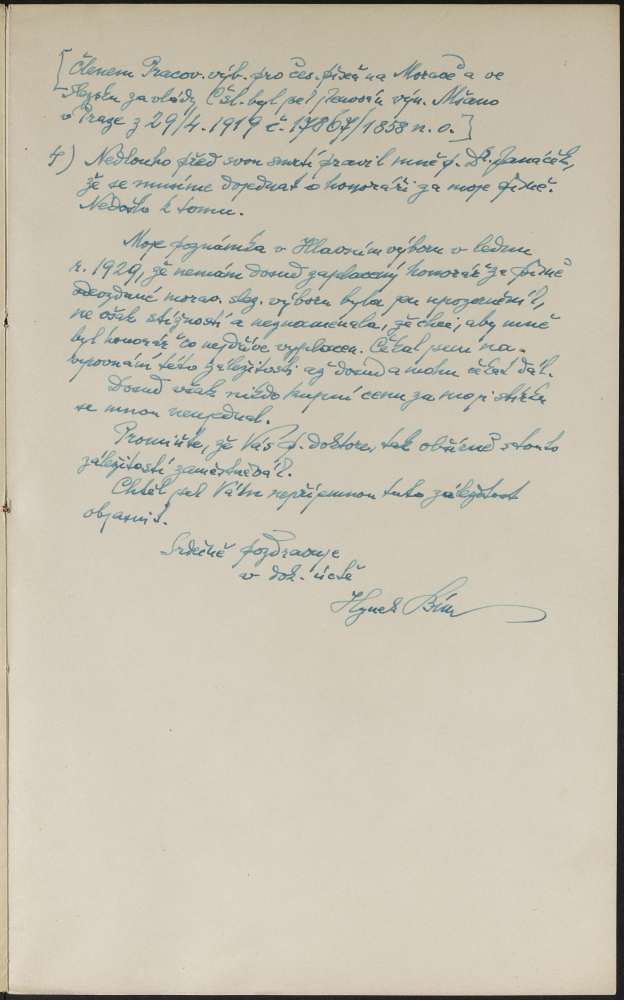 [Členem Pracov. výb. pro čes. píseň na Moravě a ve
Slezsku za vlády Čsl. byl jsem jmenován výn. Mšano
v Praze z 29/4. 1919 č. 17867/1858 n. o.]
4) Nedlouho před svou smrtí pravil mně p. Dr. Janáček,
že se musíme dojednat o honoráři za moje písně.
Nedošlo k tomu.
Moje poznámka v Hlavním výboru v lednu
r. 1929, že nemám dosud zaplacený honorář za písně
odevzdané morav. slez. výboru byla jen upozorněním,
ne však stížností a neznamenala, že chci, aby mně
byl honorář co nejdříve vyplacen. Čekal jsem na
vyrovnání této záležitosti až dosud a mohu čekat dál.
Dosud však nikdo kupní cenu za moji sbírku
se mnou neujednal.
Promiňte, že Vás p. doktore, tak obšírně s touto
záležitostí zaměstnávám.
Chtěl jsem Vám nepříjemnou tuto záležitost
objasnit.
Srdečně pozdravuje
v dok. úctě
Hynek Bím